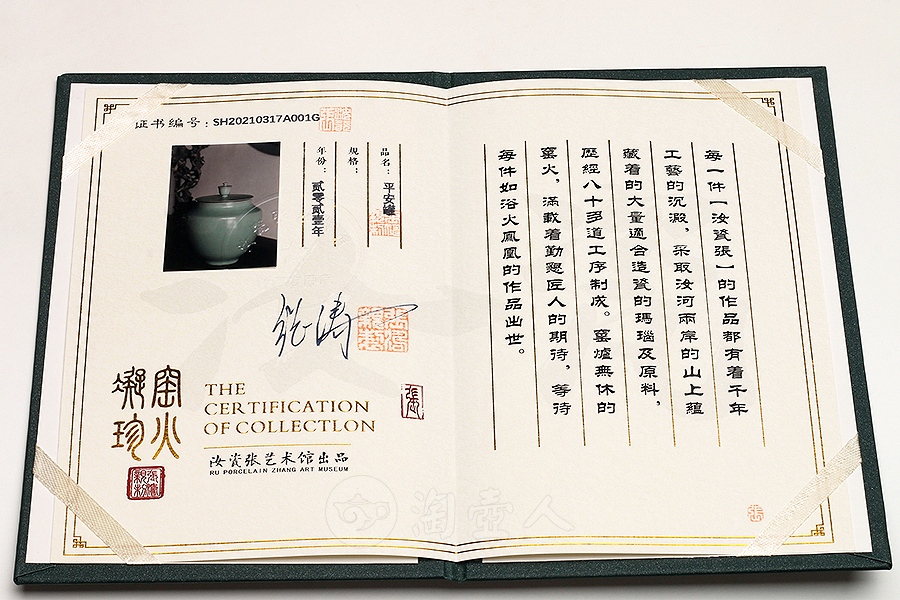 证书编号：SH20210317A001G
品名：平安罐
規格：
年份：贰零贰壹年
张涛
窑火
凝珍
THE
CERTIFICATION
OF COLLECTLON
汝瓷张艺术馆出品
RU PORCELAIN ZHANG ART MUSEUM
每一件一汝瓷張一的作品都有着千年
工藝的沉澱，采取汝河兩岸的山上蘊
藏着的大量適合造瓷的瑪瑙及原料，
歷經八十多道工序制成。窑爐無休的
窑火，滿載着勤懇匠人的期待，等待
每件如浴火鳳凰的作品出世。
淘壶人